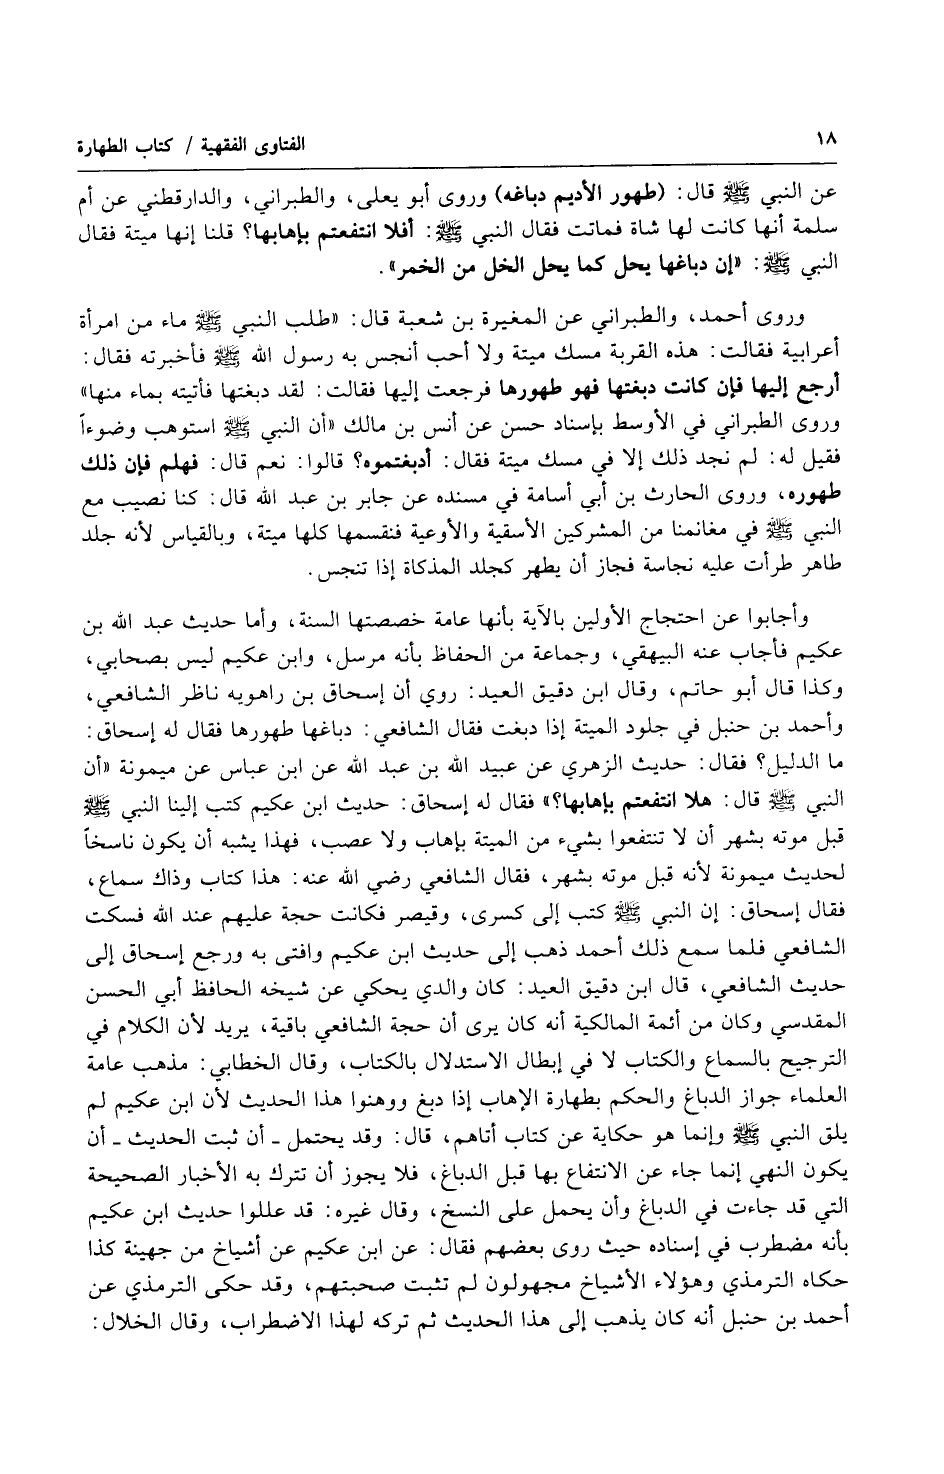 ١٨
الفتاوى الفقهية / كتاب الطهارة
عن النبي ﷺ قال: (طهور الأديم دباغه) وروى أبو يعلى، والطبراني، والدارقطني عن أم
سلمة أنها كانت لها شاة فماتت فقال النبي ﷺ: أفلا انتفعتم بإهابها؟ قلنا إنها ميتة فقال
النبي ﷺ: «إن دباغها يحل كما يحل الخل من الخمر».
وروى أحمد، والطبراني عن المغيرة بن شعبة قال: «طلب النبي ﷺ ماء من امرأة
أعرابية فقالت: هذه القربة مسك ميتة ولا أحب أنجس به رسول الله ﷺ فأخبرته فقال:
أرجع إليها فإن كانت دبغتها فهو طهورها فرجعت إليها فقالت: لقد دبغتها فأتيته بماء منها»
وروى الطبراني في الأوسط بإسناد حسن عن أنس بن مالك «أن النبي ﷺ استوهب وضوءاً
فقيل له: لم نجد ذلك إلا في مسك ميتة فقال: أدبغتموه؟ قالوا: نعم قال: فهلم فإن ذلك
طهوره، وروى الحارث بن أبي أسامة في مسنده عن جابر بن عبد الله قال: كنا نصيب مع
النبي ﷺ في مغانمنا من المشركين الأسقية والأوعية فنقسمها كلها ميتة، وبالقياس لأنه جلد
طاهر طرأت عليه نجاسة فجاز أن يطهر كجلد المذكاة إذا تنجس.
وأجابوا عن احتجاج الأولين بالآية بأنها عامة خصصتها السنة، وأما حديث عبد الله بن
عكيم فأجاب عنه البيهقي، وجماعة من الحفاظ بأنه مرسل، وابن عكيم ليس بصحابي،
وكذا قال أبو حاتم، وقال ابن دقيق العيد: روي أن إسحاق بن راهويه ناظر الشافعي،
وأحمد بن حنبل في جلود الميتة إذا دبغت فقال الشافعي: دباغها طهورها فقال له إسحاق:
ما الدليل؟ فقال: حديث الزهري عن عبيد الله بن عبد الله عن ابن عباس عن ميمونة «أن
النبي ﷺ قال: هلا انتفعتم بإهابها؟» فقال له إسحاق: حديث ابن عكيم كتب إلينا النبي ﷺ
قبل موته بشهر أن لا تنتفعوا بشيء من الميتة بإهاب ولا عصب، فهذا يشبه أن يكون ناسخاً
لحديث ميمونة لأنه قبل موته بشهر، فقال الشافعي رضي الله عنه: هذا كتاب وذاك سماع،
فقال إسحاق: إن النبي ﷺ كتب إلى كسرى، وقيصر فكانت حجة عليهم عند الله فسكت
الشافعي فلما سمع ذلك أحمد ذهب إلى حديث ابن عكيم وافتى به ورجع إسحاق إلى
حديث الشافعي، قال ابن دقيق العيد: كان والدي يحكي عن شيخه الحافظ أبي الحسن
المقدسي وكان من أئمة المالكية أنه كان يرى أن حجة الشافعي باقية، يريد لأن الكلام في
الترجيح بالسماع والكتاب لا في إبطال الاستدلال بالكتاب، وقال الخطابي: مذهب عامة
العلماء جواز الدباغ والحكم بطهارة الإهاب إذا دبغ ووهنوا هذا الحديث لأن ابن عكيم لم
يلق النبي ﷺ وإنما هو حكاية عن كتاب أتاهم، قال: وقد يحتمل ـ أن ثبت الحديث ـ أن
يكون النهي إنما جاء عن الانتفاع بها قبل الدباغ، فلا يجوز أن تترك به الأخبار الصحيحة
التي قد جاءت في الدباغ وأن يحمل على النسخ، وقال غيره: قد عللوا حديث ابن عكيم
بأنه مضطرب في إسناده حيث روى بعضهم فقال: عن ابن عكيم عن أشياخ من جهينة كذا
حكاه الترمذي وهؤلاء الأشياخ مجهولون لم تثبت صحبتهم، وقد حكى الترمذي عن
أحمد بن حنبل أنه كان يذهب إلى هذا الحديث ثم تركه لهذا الاضطراب، وقال الخلال: